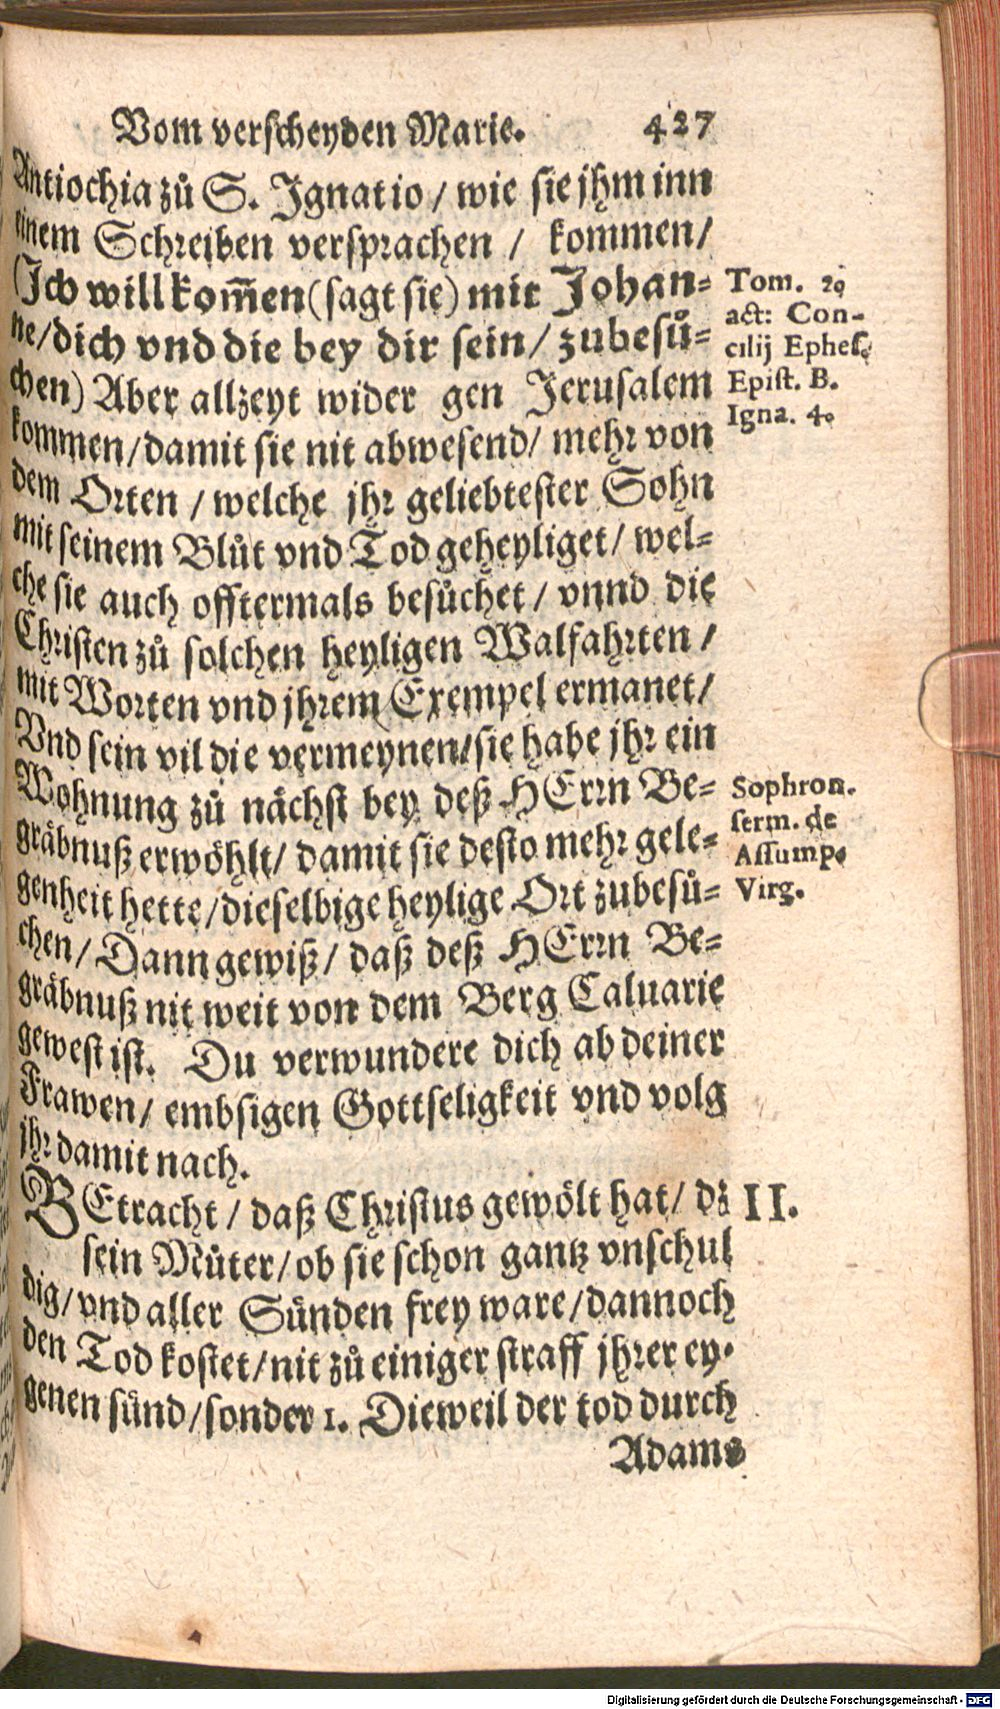 Vom verscheyden Marie. 427
Antiochia zů S. Ignatio / wie sie jhm inn
einem Schreiben versprachen / kommen /
(Ich will kom̃en (sagt sie) mit Johan-
ne / dich vnd die bey dir sein / zubesů-
chen) Aber allzeyt wider gen Jerusalem
kommen / damit sie nit abwesend / mehr von
dem Orten / welche jhr geliebtester Sohn
mit seinem Blůt vnd Tod geheyliget / wel-
che sie auch offtermals besůchet / vnnd die
Christen zů solchen heyligen Walfahrten /
mit Worten vnd jhrem Exempel ermanet /
Vnd sein vil die vermeynen / sie habe jhr ein
Wohnung zů nächst bey deß HErrn Be-
gräbnuß erwöhlt / damit sie desto mehr gele-
genheit hette / dieselbige heylige Ort zubesů-
chen / Dann gewiß / daß deß HErrn Be-
gräbnuß nit weit von dem Berg Caluarie
gewest ist. Du verwundere dich ab deiner
Frawen / embsigen Gottseligkeit vnd volg
jhr damit nach.
BEtracht / daß Christus gewölt hat / dz
sein Můter / ob sie schon gantz vnschul
dig / vnd aller Sünden frey ware / dannoch
den Tod kostet / nit zů einiger straff jhrer ey-
genen sünd / sonder 1. Dieweil der tod durch
Adams
Tom. 2.
act: Con-
cilij Ephes.
Epist. B.
Igna. 4.
Sophron.
serm. de
Assump.
Virg.
II.
Digitalisierung gefördert durch die Deutsche Forschungsgemeinschaft - DFG